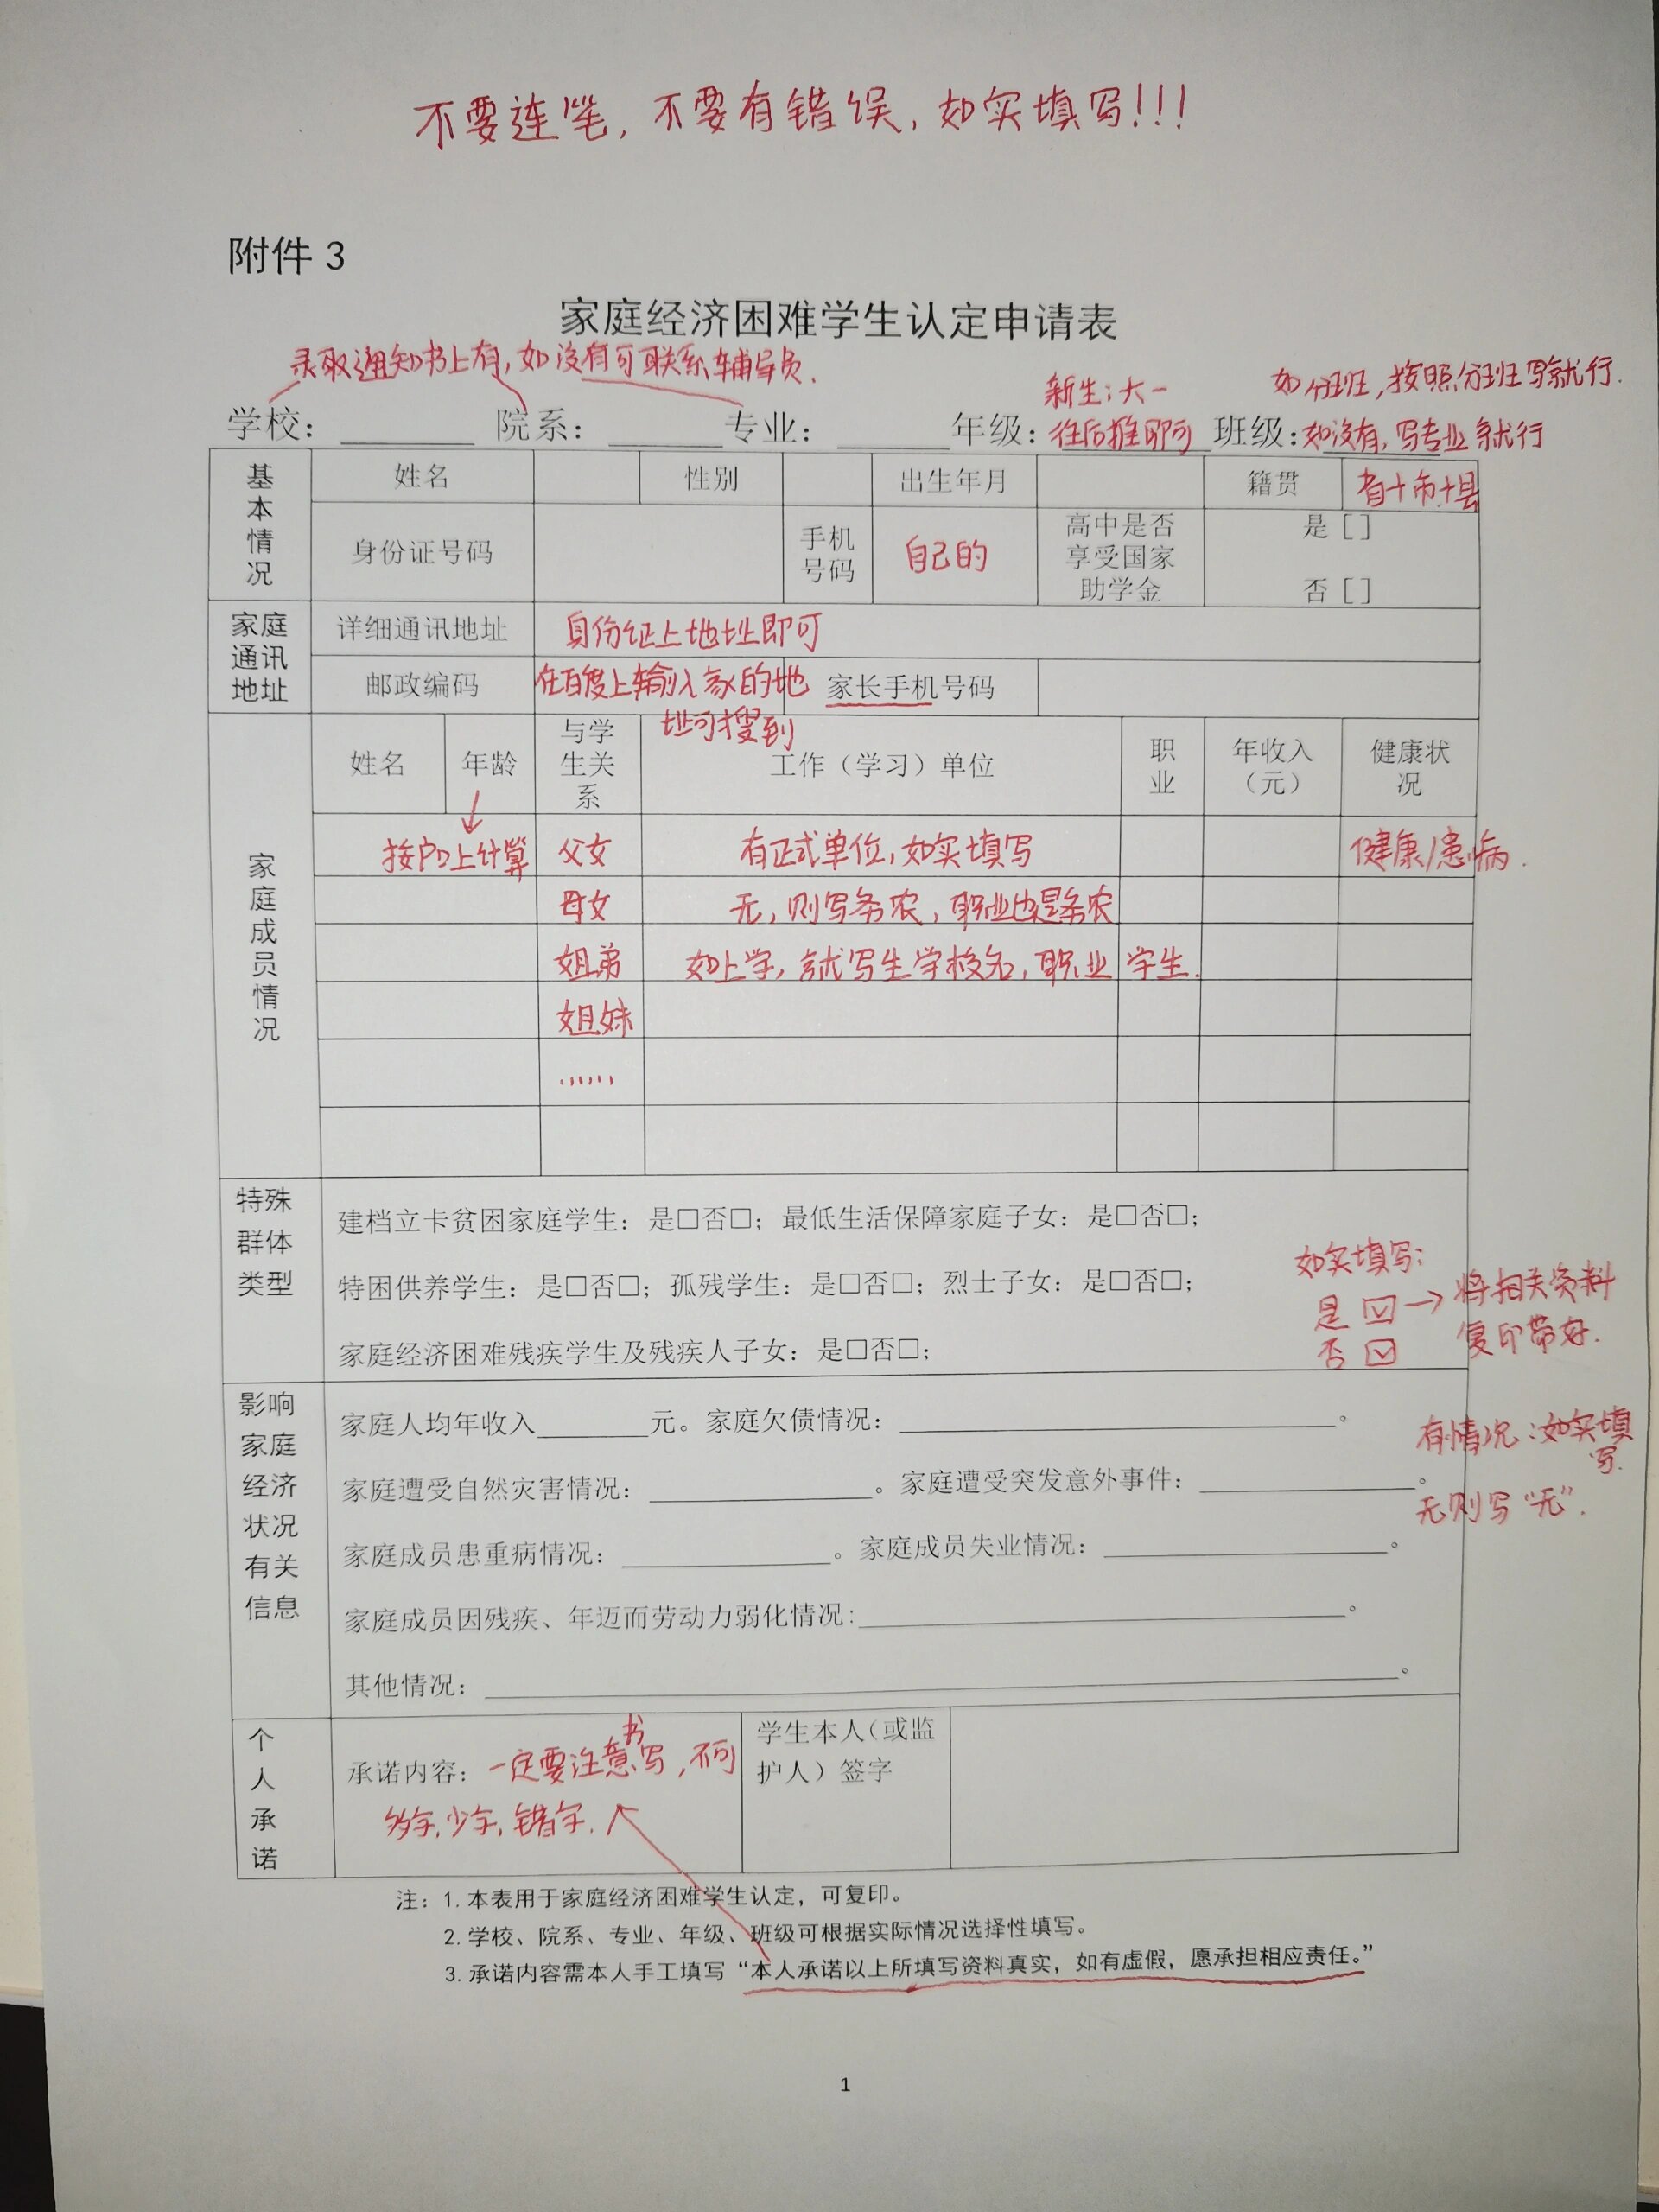 不要连笔,不要有错误,如实填写!!!
附件 3
家庭经济困难学生认定申请表
录取通知书上有,如没有可联系辅导员.
新生:大一
如分班,按照分班写就行.
学校: 院系: 专业: 年级:往后推即可 班级:如没有,写专业就行
基本情况
姓名 性别 出生年月 籍贯 省+市+县
身份证号码 手机号码 自己的 高中是否享受国家助学金 是 [ ] 否 [ ]
家庭通讯地址
详细通讯地址 身份证上地址即可
邮政编码 在百度上输入家的地址可搜到 家长手机号码
家庭成员情况
姓名 年龄 与学生关系 工作（学习）单位 职业 年收入（元） 健康状况
按户口上计算 父女 有正式单位,如实填写 健康/患病.
母女 无,则写务农,职业也是务农
姐弟 如上学,就写学校名,职业 学生.
姐妹
......
特殊群体类型
建档立卡贫困家庭学生：是□否□；最低生活保障家庭子女：是□否□；
特困供养学生：是□否□；孤残学生：是□否□；烈士子女：是□否□；
家庭经济困难残疾学生及残疾人子女：是□否□；
如实填写:
是 ☑→将相关资料
否 ☑ 复印带好.
影响家庭经济状况有关信息
家庭人均年收入 元。家庭欠债情况： 。
家庭遭受自然灾害情况： 。家庭遭受突发意外事件： 。
家庭成员患重病情况： 。家庭成员失业情况： 。
家庭成员因残疾、年迈而劳动力弱化情况: 。
其他情况： 。
有情况:如实填写.
无则写“无”.
个人承诺
承诺内容：一定要注意书写,不可
多字,少字,错字.
学生本人（或监护人）签字
注：1. 本表用于家庭经济困难学生认定，可复印。
2. 学校、院系、专业、年级、班级可根据实际情况选择性填写。
3. 承诺内容需本人手工填写“本人承诺以上所填写资料真实，如有虚假，愿承担相应责任。”
1